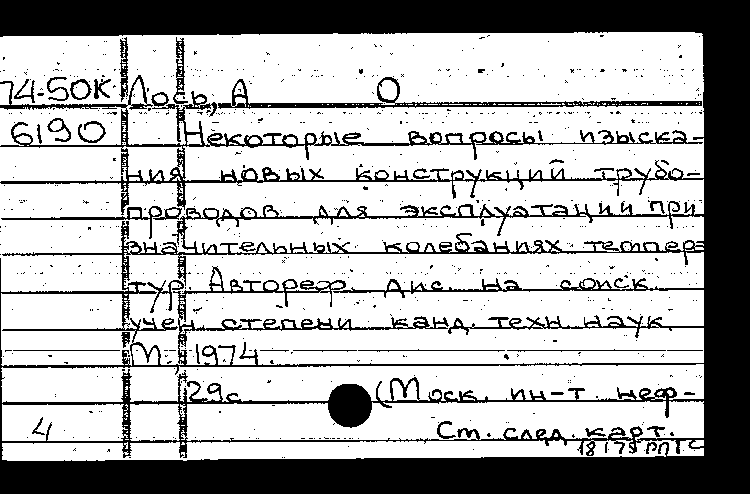 74-50К Лось, А О
6190 Некоторые вопросы изыска-
ния новых конструкций трубо-
проводов для эксплуатации при
значительных колебаниях темпера
тур. Автореф. дис. на соиск.
учен. степени канд. техн. наук.
М., 1974.
29с (Моск. ин-т неф-
4 Ст. след. карт.